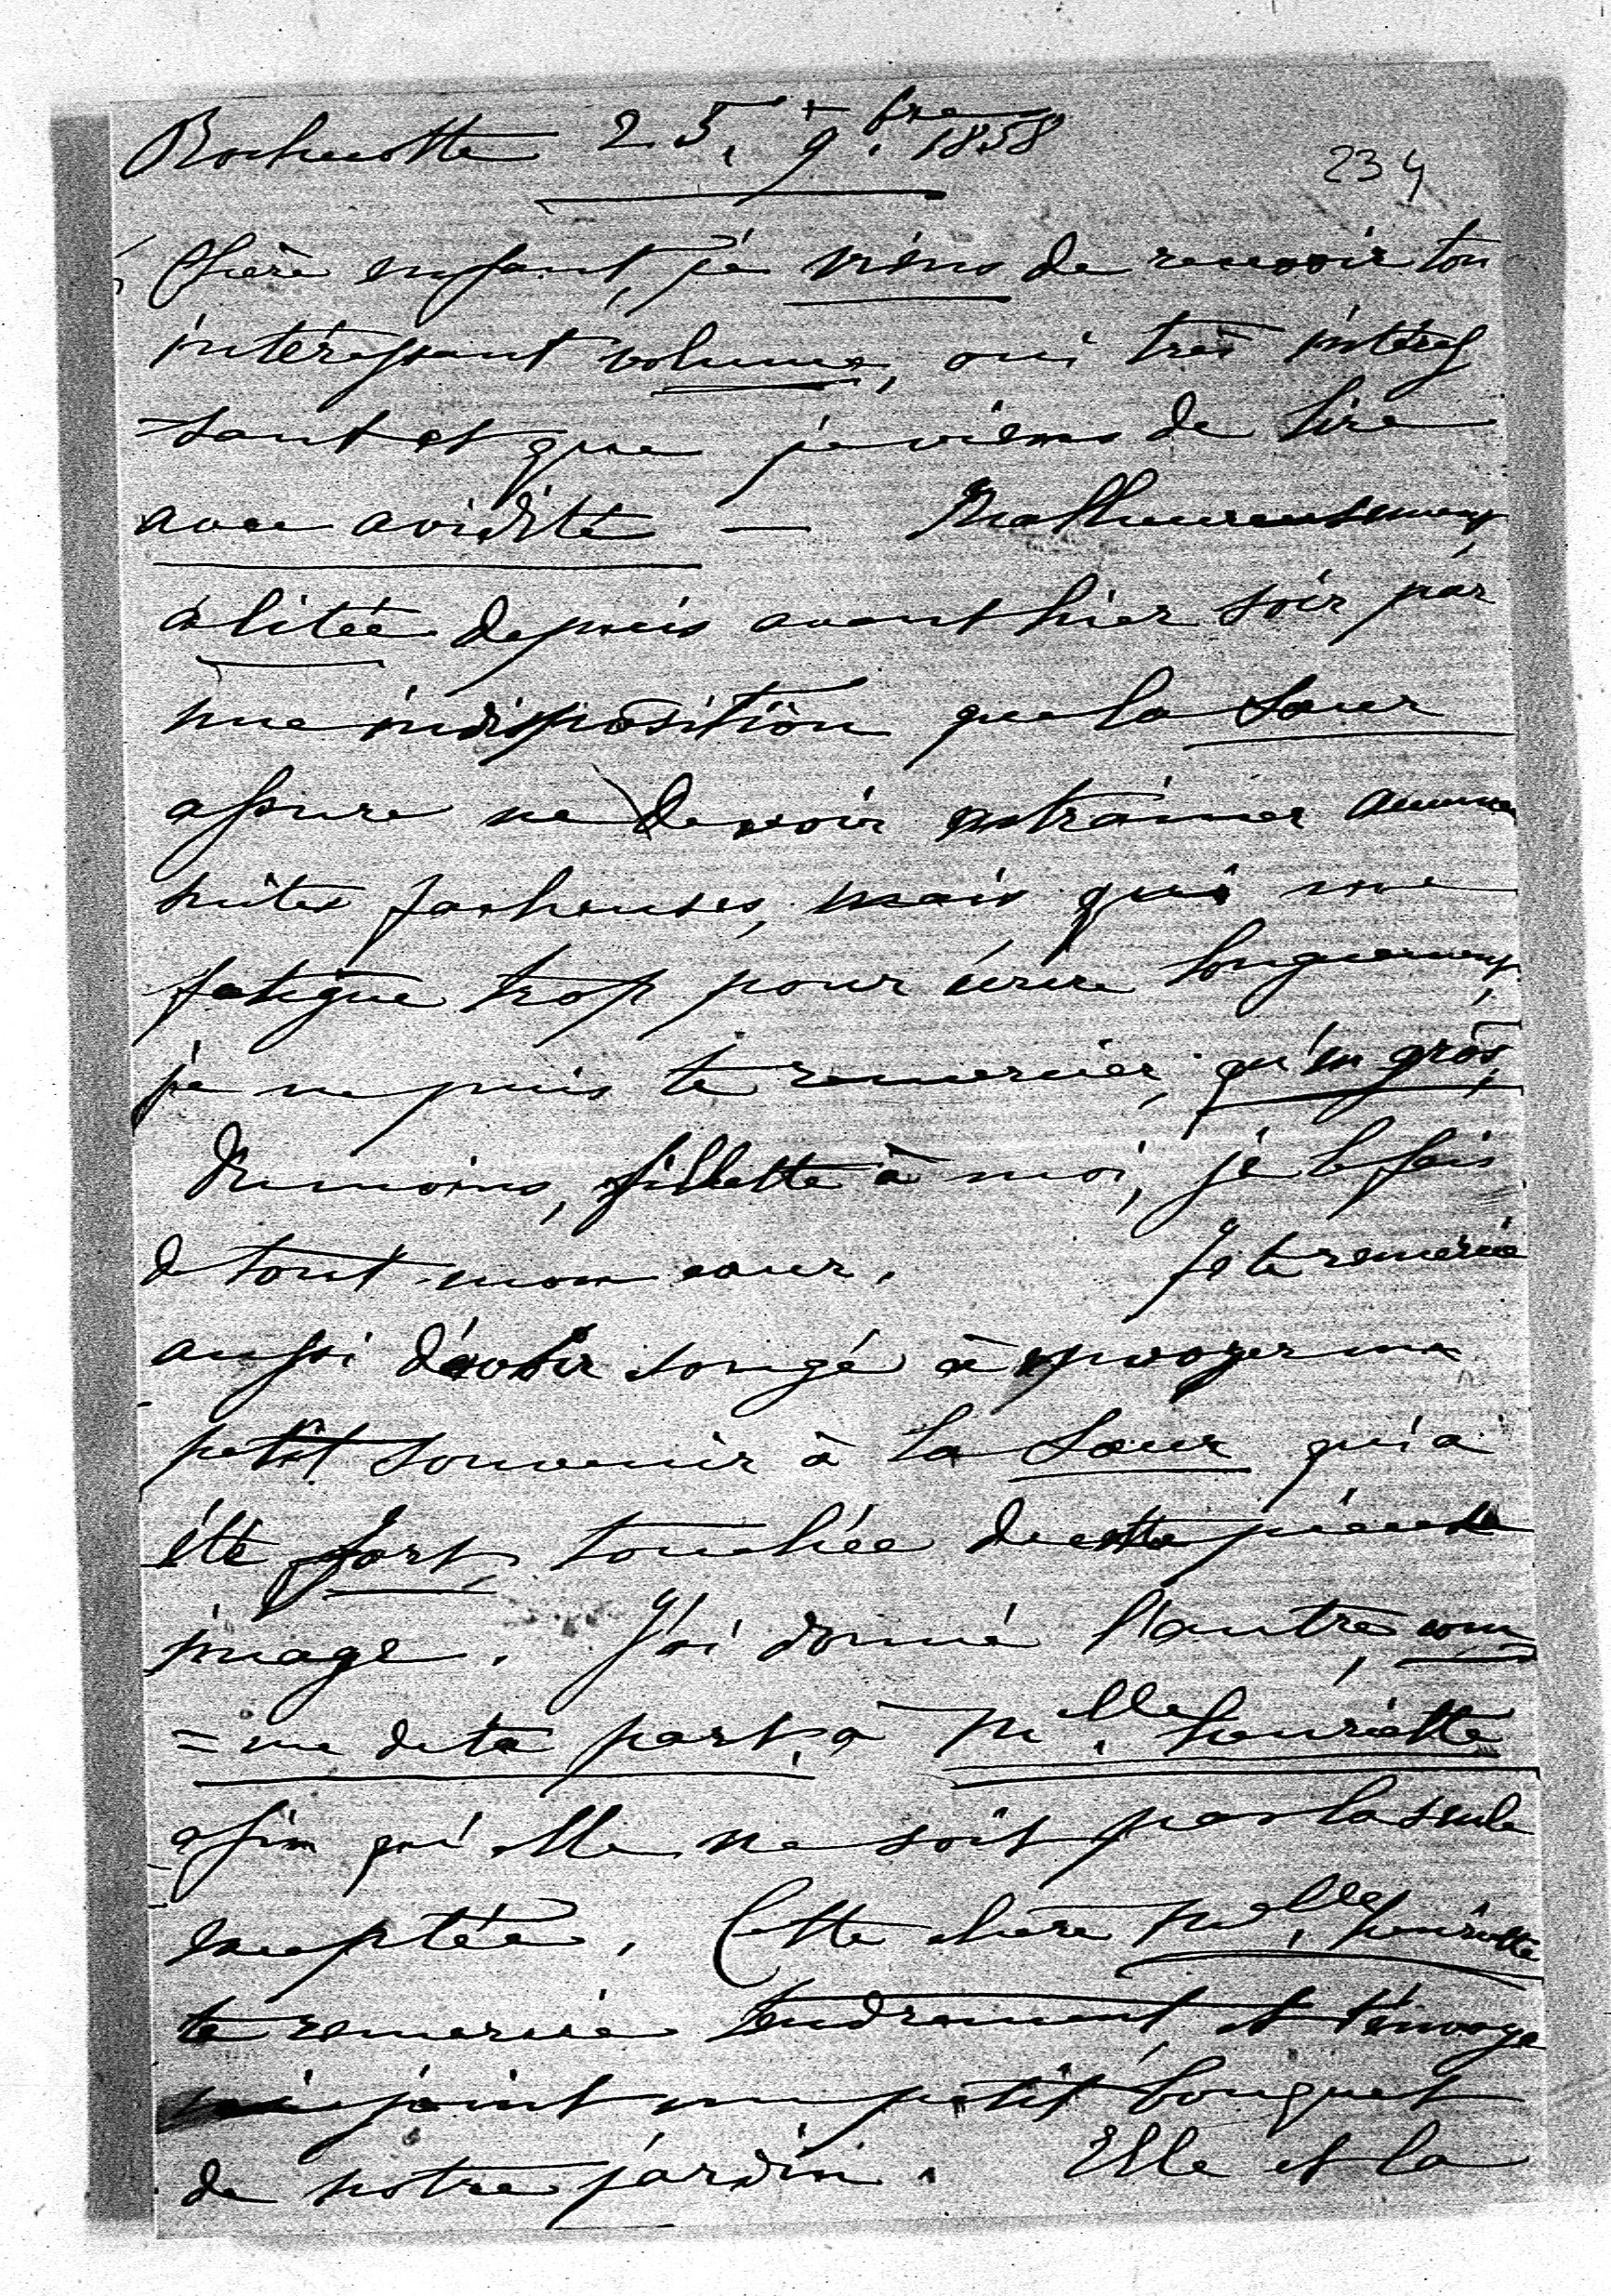 Rochecotte 25, 9.bre 1858
234
Chère enfant, je viens de recevoir ton
intéressant volume, oui très intéres
sant et que je viens de lire
avec avidité — Malheureusement,
alitée depuis avant hier soir par
une indisposition que la Sœur
assure ne devoir entrainer aucunes
suites facheuses, mais qui me
fatigue trop pour écrire longuement,
je ne puis te remercier, qu'en gros,
Du moins, fillette à moi, je le fais
de tout mon cœur. Je te remercie
aussi d'avoir songé à envoyer un
petit souvenir à la Sœur qui a
été fort touchée de cette pieuse
image. J'ai donné l'autre, com
=me de ta part, à Mlle. henriette
afin qu'elle ne soit pas la seule
exceptée. Cette chère Mlle. henriette
te remercie tendrement, et t'envoye
ci joint un petit bouquet
de notre jardin. Elle et la